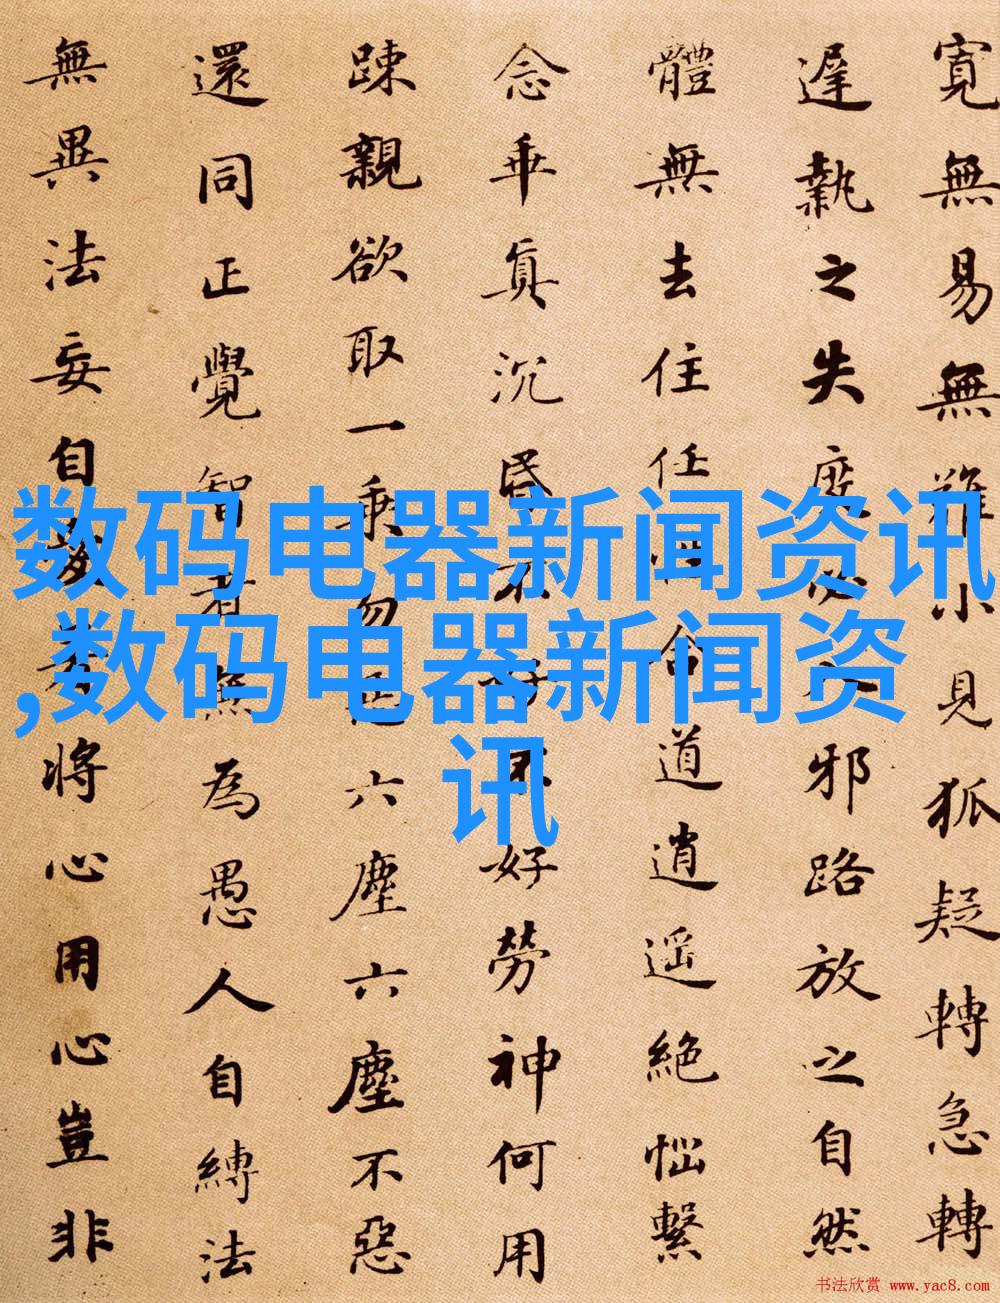 寬無易無難小見狐疑轉急轉
遲執之失度必入邪路放之自然
體無去住任性合道逍遥絕惱繫
念乖真沉昏不好不好勞神何用
踈親欲取一乘勿惡六塵六塵不惡
還同正覺智者無為愚人自縛法
無異法妄自愛著將心用心豈非
数码电器新闻资讯
,数码电器新闻资
讯
书法欣赏 www.yac8.com